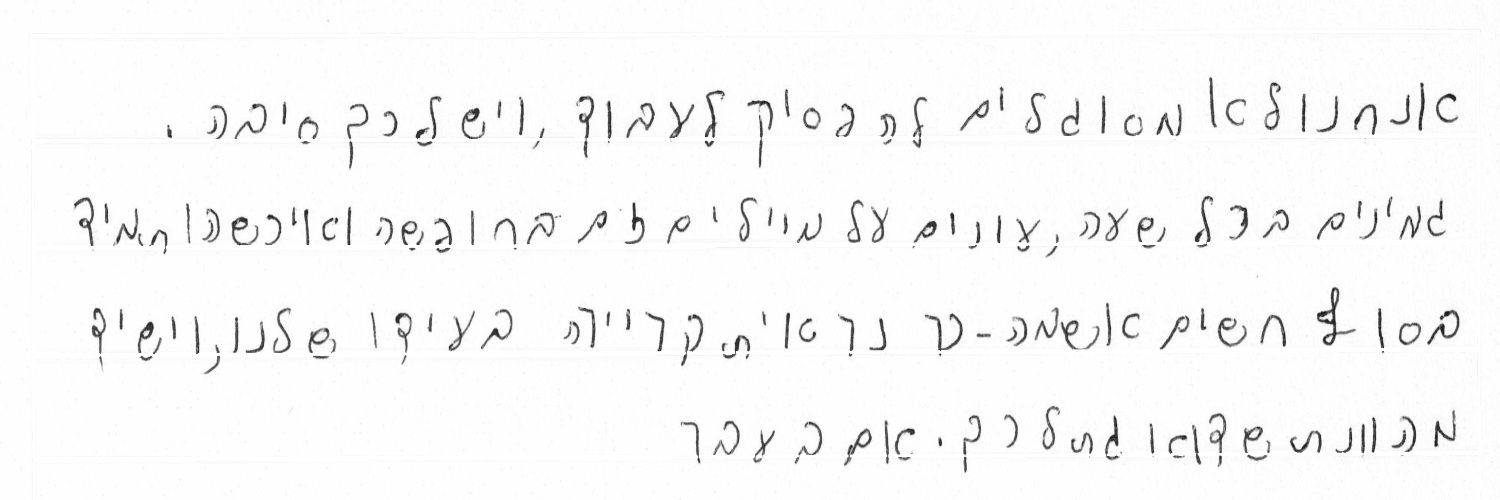 אנחנו לא מסוגלים להפסיק לעבוד, ויש לכך סיבה.
זמינים בכל שעה, עונים על מיילים גם בחופשה ואיכשהו תמיד
בסוף חשים אשמה - כך נראית קריירה בעידן שלנו, ויש יד
מכוונת שדואגת לכך. אם בעבר